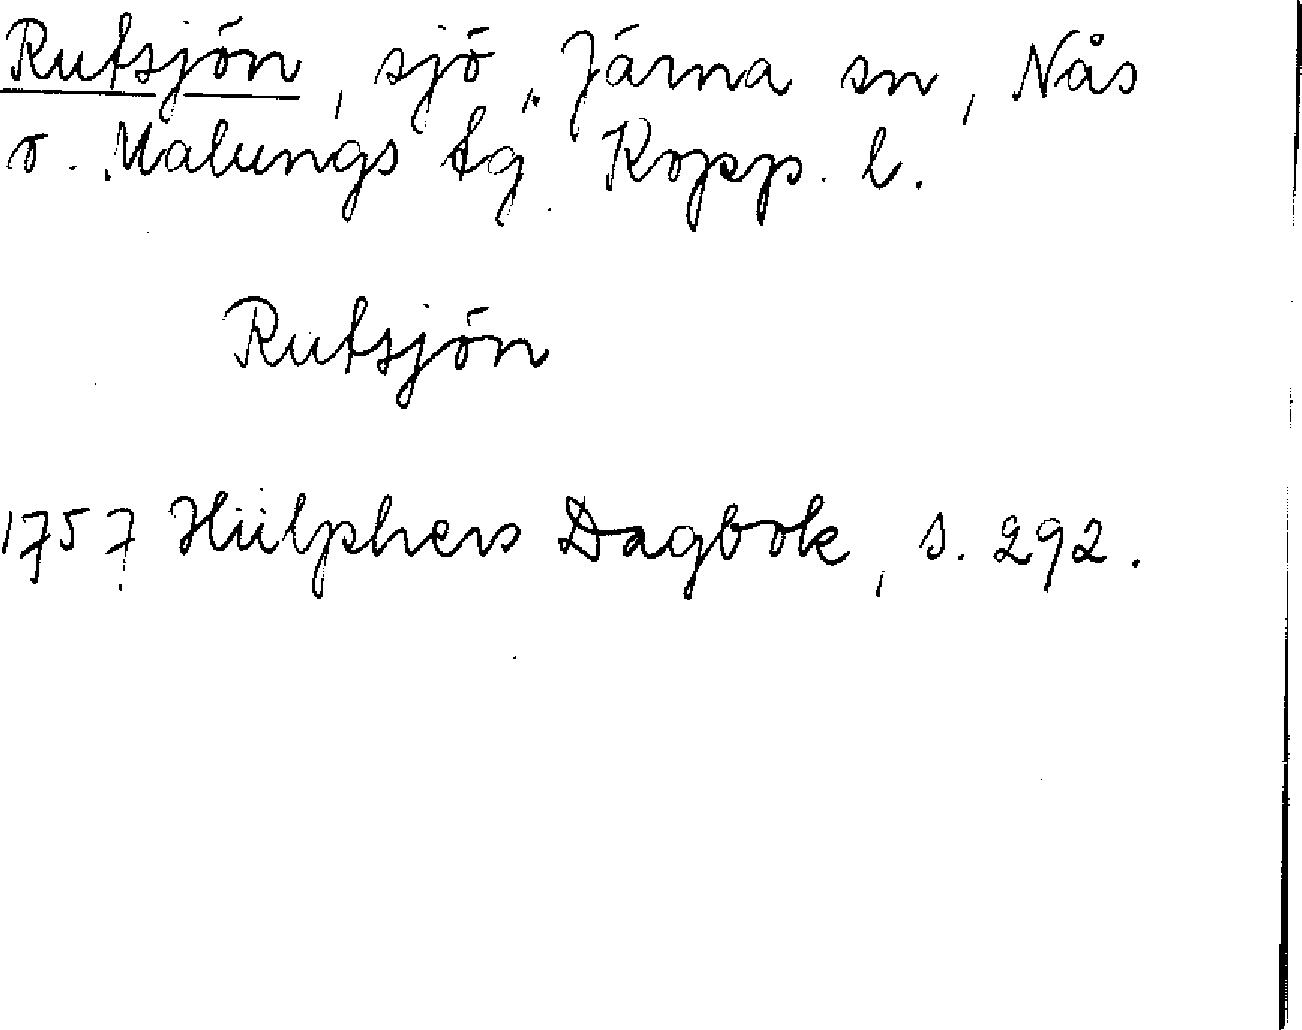 Rutsjön, sjö, Järna sn, Nås
o. Malungs tg Kopp. l.
Rutsjön
1757 Hülphers Dagbok, s. 292.